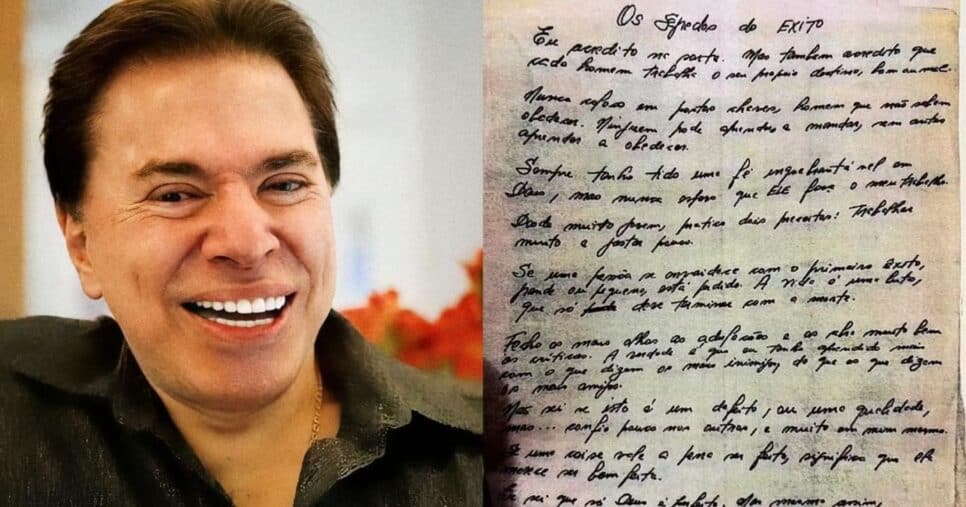 Os Segredos do EXITO
Eu acredito na sorte. Mas tambem acredito que
cada homem trabalha o seu proprio destino, bom ou mal.
Nunca coloco em postos chaves, homem que não sabem
obedecer. Ninguem pode aprender a mandar, sem antes
aprender a obedecer.
Sempre tenho tido uma fé inquebrantável em
Deus, mas nunca espero que ELE faça o meu trabalho.
Desde muito jovem, pratico dois preceitos: Trabalhar
muito e gastar pouco.
Se uma pessoa se envaidece com o primeiro Exito,
grande ou pequeno, está perdido. A vida é uma luta,
que só deve terminar com a morte.
Fecho os meus olhos as adulações e os abro muito bem
as críticas. A verdade é que eu tenho aprendido mais
com o que dizem os meus inimigos, do que os que dizem
os meus amigos.
Não sei se isto é um defeito, ou uma qualidade,
mas... confio pouco nos outros, e muito em mim mesmo.
Se uma coisa vale a pena ser feita, significa que ela
merece ser bem feita.
Eu sei que só Deus é perfeito. Mas mesmo assim,